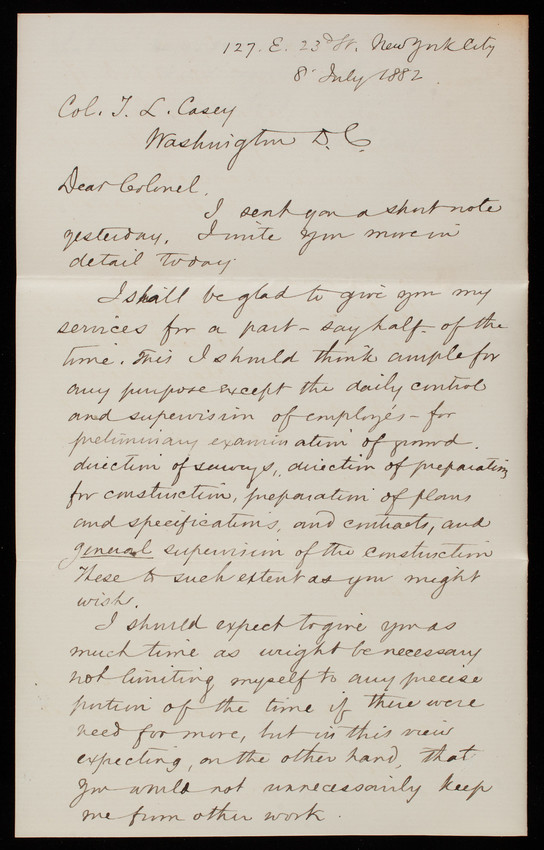 127. E. 23d St. New York City
8 July 1882.
Col. T. L. Casey
Washington D.C.
Dear Colonel,
I sent you a short note
yesterday. I write you more in
detail today.
I shall be glad to give you my
services for a part - say half - of the
time. This I should think ample for
any purpose except the daily control
and supervision of employés - for
preliminary examination of ground.
direction of surveys, direction of preparations
for construction, preparation of plans
and specifications, and contracts, and
general supervision of the construction
These to such extent as you might
wish.
I should expect to give you as
much time as might be necessary
not limiting myself to any precise
portion of the time if there were
need for more, but in this view
expecting, on the other hand, that
you would not unnecessarily keep
me from other work.